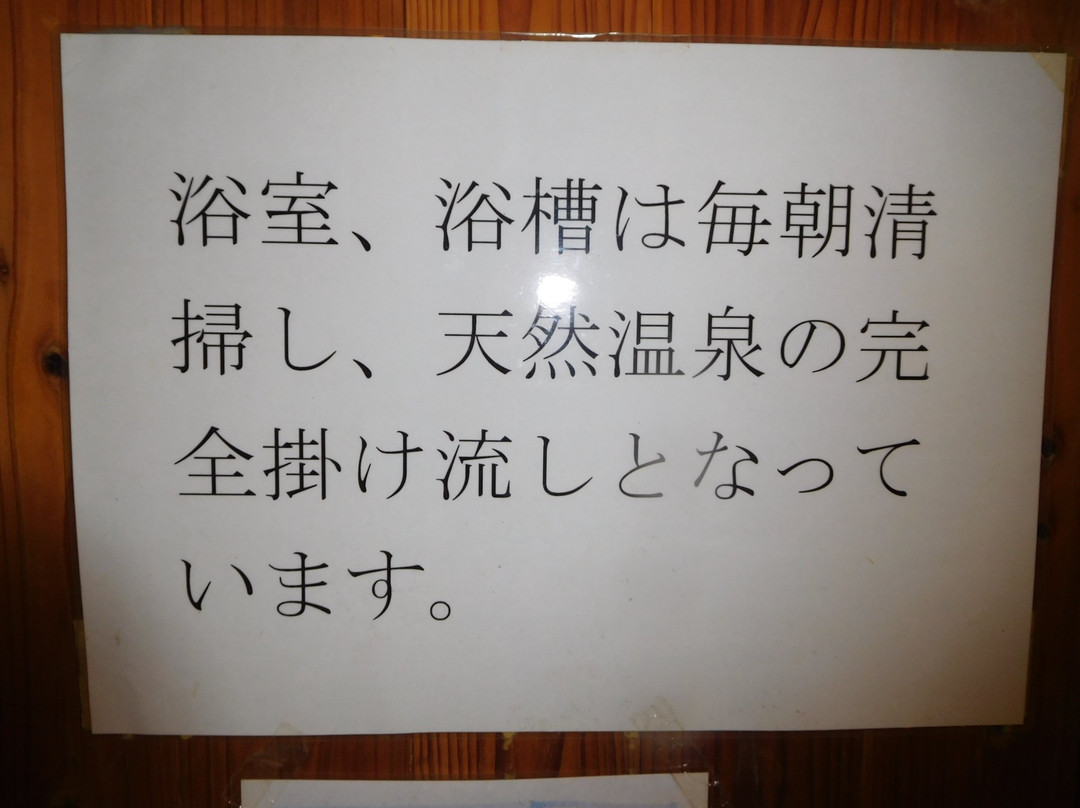 浴室、浴槽は毎朝清
掃し、天然温泉の完
全掛け流しとなって
います。